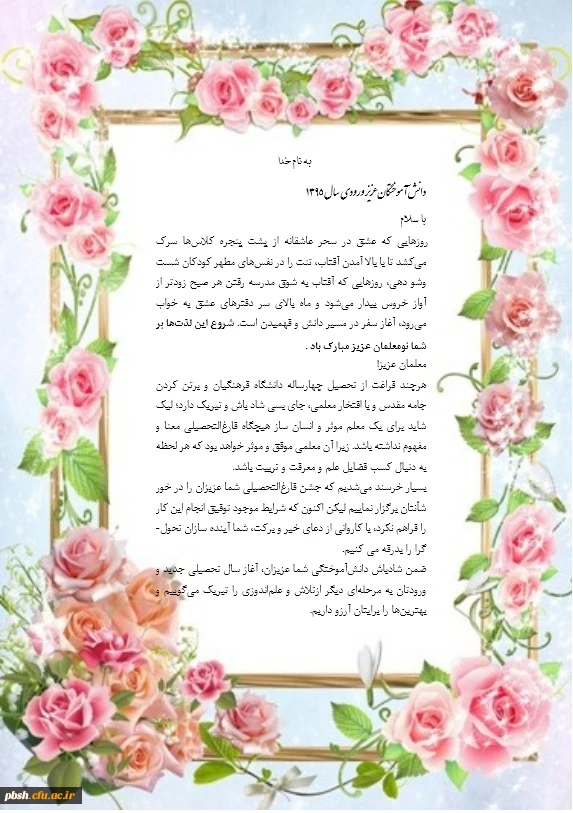 به نام خدا
دانش‌آموختگان عزیز ورودی سال ۱۳۹۵
با سلام
روزهایی که عشق در سحر عاشقانه از پشت پنجره کلاس‌ها سرک
می‌کشد تا با بالا آمدن آفتاب، تنت را در نفس‌های مطهر کودکان شست
وشو دهی، روزهایی که آفتاب به شوق مدرسه رفتن هر صبح زودتر از
آواز خروس بیدار می‌شود و ماه بالای سر دفترهای عشق به خواب
می‌رود، آغاز سفر در مسیر دانش و فهمیدن است. شروع این لذت‌ها بر
شما نومعلمان عزیز مبارک باد .
معلمان عزیز!
هرچند فراغت از تحصیل چهارساله دانشگاه فرهنگیان و برتن کردن
جامه مقدس و با افتخار معلمی، جای بسی شاد باش و تبریک دارد؛ لیک
شاید برای یک معلم موثر و انسان ساز هیچگاه فارغ‌التحصیلی معنا و
مفهوم نداشته باشد. زیرا آن معلمی موفق و موثر خواهد بود که هر لحظه
به دنبال کسب فضایل علم و معرفت و تربیت باشد.
بسیار خرسند می‌شدیم که جشن فارغ‌التحصیلی شما عزیزان را در خور
شأنتان برگزار نماییم لیکن اکنون که شرایط موجود توفیق انجام این کار
را فراهم نکرد، با کاروانی از دعای خیر و برکت، شما آینده سازان تحول-
گرا را بدرقه می کنیم.
ضمن شادباش دانش‌آموختگی شما عزیزان، آغاز سال تحصیلی جدید و
ورودتان به مرحله‌ای دیگر ازتلاش و علم‌اندوزی را تبریک می‌گوییم و
بهترین‌ها را برایتان آرزو داریم.
pbsh.cfu.ac.ir